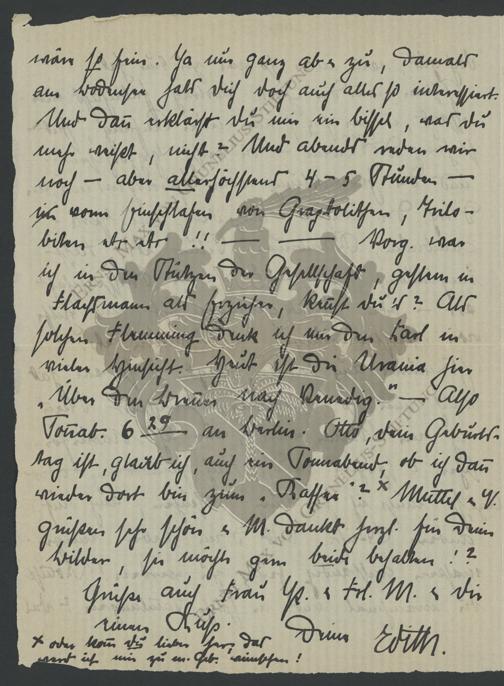 wäre so fein. Ja nur ganz ab u zu, damals
am Bodensee hats dich doch auch alles so interessiert.
Und dann erklärst du mir ein bissel, was du
mehr weißt, nicht? Und abends reden wir
noch — aber allerhöchstens 4–5 Stunden —
vorm Einschlafen von Graptolithen, Trilo-
biten etc etc!! — — Vorg. war
ich in den Stützen der Gesellschaft, gestern in
Flachsmann als Erzieher, kennst du's? Als
solchen Flemming denk ich mir den Karl in
vieler Hinsicht. Heut ist die Urania hier
„Über den Brenner nach Venedig." — Also
Sonnab. 6 29 an Berlin. Otto, dein Geburts-
tag ist, glaub ich, auch ein Sonnabend, ob ich dann
wieder dort bin zum „Kaffee"? x Muttel u
grüßen sehr schön u M. dankt herzl. für deine
Bilder, sie möchte gern beide behalten!?
Grüße auch Frau u Frl. M. u dir
einen Kuß. Deine Edith.
x oder komm du lieber her, das
werd ich mir zu m. Geb. wünschen!